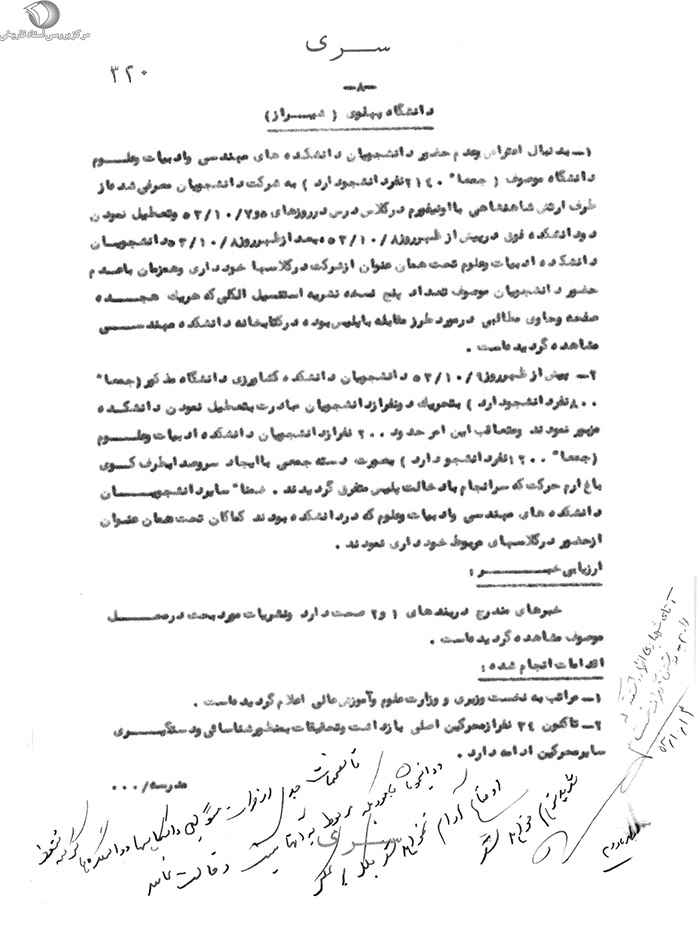 مرکز بررسی اسناد تاریخی
سری
۳۲۰
-۸-
دانشگاه پهلوی ( شیراز )
۱- بدنبال اعتراض وعدم حضور دانشجویان دانشکده های مهندسی وادبیات وعلوم
دانشگاه موصوف ( جمعا" ۲۱۴۰ نفردانشجودارد ) به شرکت دانشجویان معرفی شده از
طرف ارتش شاهنشاهی با اونیفورم درکلاس درس درروزهای ۷و۵۳/۱۰/۵ وتعطیل نمودن
دودانشکده فوق درپیش از ظهرروز ۵۳/۱۰/۸ ، بعدازظهرروز ۵۳/۱۰/۸ دانشجویان
دانشکده ادبیات وعلوم تحت همان عنوان ازشرکت درکلاسها خودداری وهمزمان باعدم
حضور دانشجویان موصوف تعداد پنج نسخه نشریه استنسیل الکلی که هریک هجده
صفحه وحاوی مطالبی درمورد طرز مقابله باپلیس بوده درکتابخانه دانشکده مهندسی
مشاهده گردیده است .
۲- پیش از ظهرروز ۵۳/۱۰/۹ دانشجویان دانشکده کشاورزی دانشگاه مذکور (جمعا"
۸۰۰ نفردانشجودارد ) بتحریک دونفرازدانشجویان مبادرت بتعطیل نمودن دانشکده
مزبور نمودند ومتعاقب این امر حدود ۲۰۰ نفرازدانشجویان دانشکده ادبیات وعلوم
(جمعا" ۱۲۰۰ نفردانشجو دارد ) بصورت دسته جمعی باایجاد سروصدابطرف کوی
باغ ارم حرکت که سرانجام بادخالت پلیس متفرق گردیدند . ضمنا" سایردانشجویان
دانشکده های مهندسی وادبیات وعلوم که دردانشکده بودند کماکان تحت همان عنوان
ازحضور درکلاسهای مربوط خودداری نمودند .
ارزیابی خبر :
خبرهای مندرج دربندهای ۱ و۲ صحت دارد ونشریات مورد بحث درمحل
موصوف مشاهده گردیده است .
اقدامات انجام شده :
۱- مراتب به نخست وزیری و وزارت علوم وآموزش عالی اعلام گردیده است .
۲- تاکنون ۲۴ نفرازمحرکین اصلی بازداشت وتحقیقات بمنظورشناسائی ودستگیری
سایرمحرکین ادامه دارد .
مدرسه/۰۰۰
سری